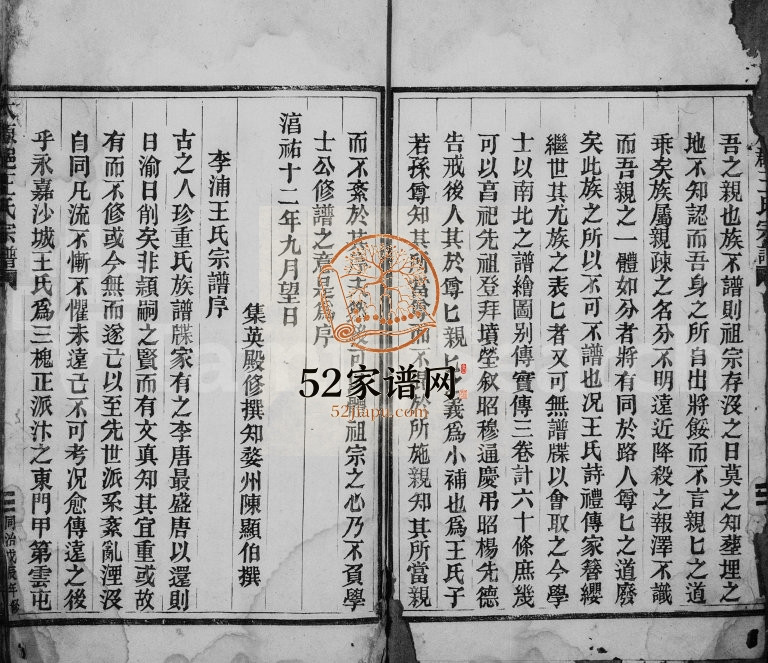 吾之親也族不譜則祖宗存沒之日莫之知塟埋之
地不知認而吾身之所自出將餒而不言親匕之道
乖矣族属親疎之名分不明遠近降殺之報澤不識
而吾親之一體如分者將有同於路人尊匕之道廢
矣此族之所以不可不譜也况王氏詩禮傳家簪纓
繼世其尤族之表匕者又可無譜牒以會取之今學
士以南北之譜繪圖别傳實傳三卷計六十條庶幾
可以啻祀先祖登拜墳塋叙昭穆逼慶弔昭楊先德
告戒後人其於尊匕親匕義為小補也為王氏子
若孫尊知其所當尊而不於所施親知其所當親
而不紊於其祖宗之心乃不負學
士公修譜之意是為序
淳祐十二年九月望日
集英殿修撰知婺州陳顯伯撰
李浦王氏宗譜序
古之人珍重氏族譜牒家有之李唐最盛唐以還則
日渝日削矣非顕嗣之賢而有文真知其宜重或故
有而不修或今無而遂亡以至先世派系紊亂湮沒
自同凡流不慚不懼未遠亡不可考况愈傳遠之後
乎永嘉沙城王氏為三槐正派汴之東門甲第雲屯
王氏宗譜
同治戊辰年
王氏宗譜
52家谱网
52jiapu.com